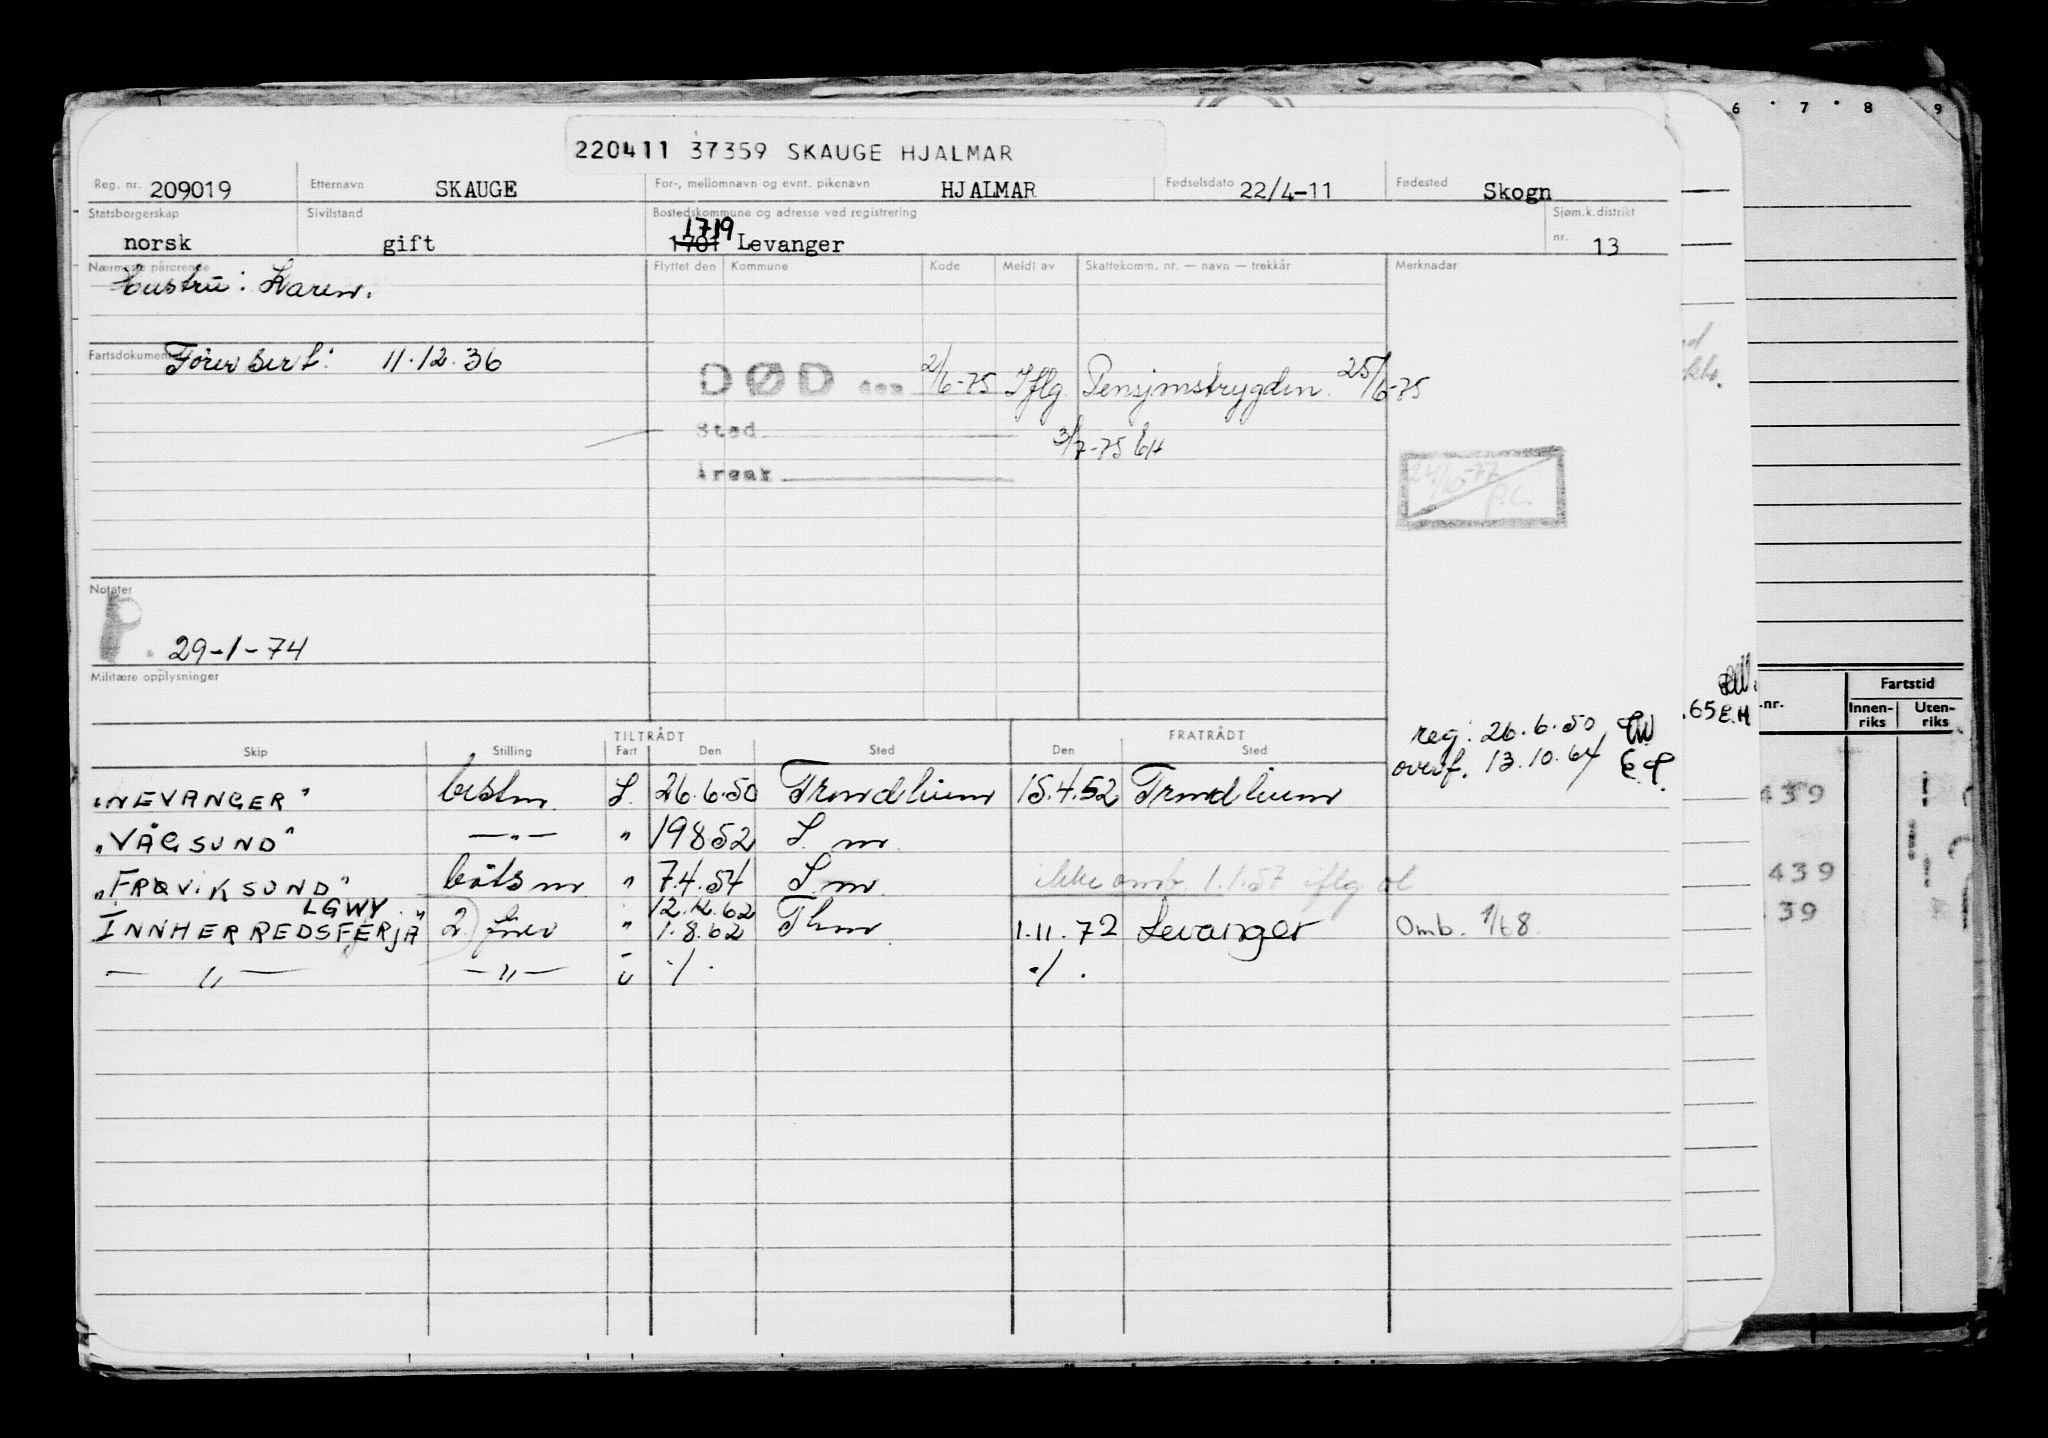 6 · 7 · 8 9
220411 37359 SKAUGE HJALMAR
Reg. nr. 209019 Etternavn SKAUGE For-, mellomnavn og evnt. pikenavn HJALMAR Fødselsdato 22/4-11 Fødested Skogn
Statsborgerskap Sivilstand Bostedskommune og adresse ved registrering Sjøm.k.distrikt
1719
norsk gift 1701 Levanger nr. 13
Nærmeste pårørende Flyttet den Kommune Kode Meldt av Skattekomm. nr. — navn — trekkår Merknader
Hustru: Karen.
Fartsdokument Förer sert: 11.12.36
DØD den 2/6-75 Iflg. Pensjonstrygden 25/6-75
Sted 3/7-75 EH
Årsak
24/10-77
P.C.
Notater
P. 29-1-74
Militære opplysninger
65 E.H
Fartstid
.nr. Innen-riks Uten-riks
reg: 26.6.50 EW
overf. 13.10.64 E.P.
TILTRÅDT FRATRÅDT
Skip Stilling Fart Den Sted Den Sted
"NEVANGER" bestm. I. 26.6.50 Trondheim 15.4.52 Trondheim
"VÅGSUND" —"— " 19852 S. m.
"FRØVIKSUND" båtsm " 7.4.54 S. m. ikke omb. 1.1.57 iflg. ol
LGWY 12.12.62
INNHERREDSFERJÅ" 2) fører " 1.8.62 Thm. 1.11.72 Levanger Omb. 1/68.
— " — —"— ü ·/· ·/·
439
439
39